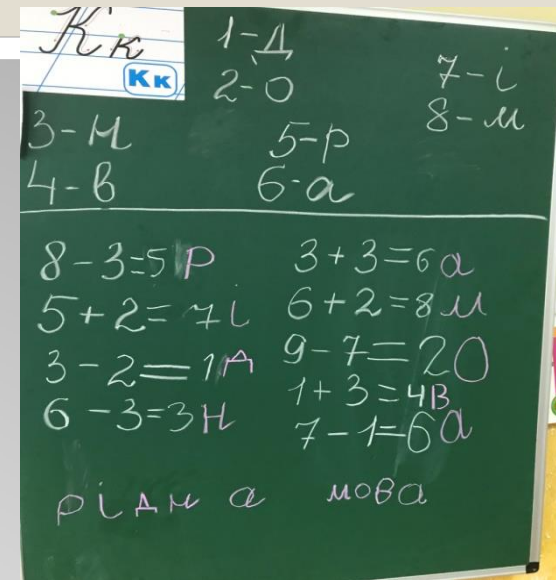 К к
Кк
1-Д
2-О
7-і
8-м
3-Н
4-в
5-р
6-а
8-3=5 р
5+2=7 і
3-2=1 Д
6-3=3 Н
3+3=6 а
6+2=8 м
9-7=2 О
1+3=4 В
7-1=6 а
рідна мова